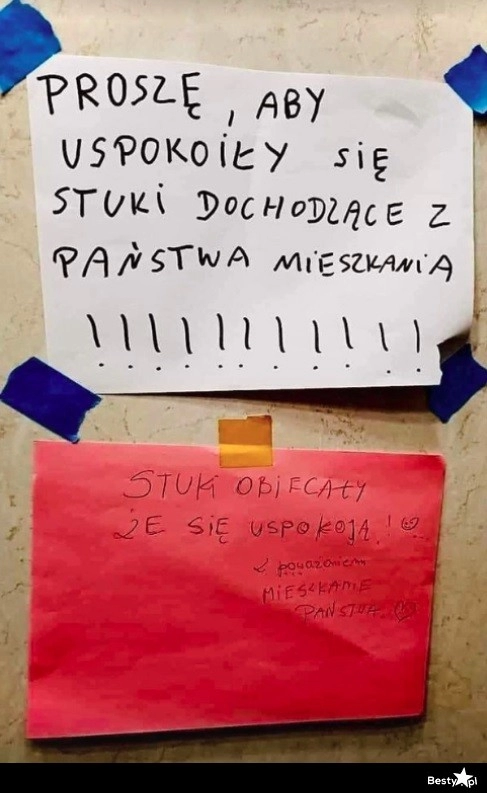 PROSZĘ, ABY
USPOKOIŁY SIĘ
STUKI DOCHODZĄCE Z
PAŃSTWA MIESZKANIA
!!!!!!!!!!!
STUKI OBIECAŁY
ŻE SIĘ USPOKOJĄ!
Z poważaniem
MIESZKANIE
PAŃSTWA
Besty.pl